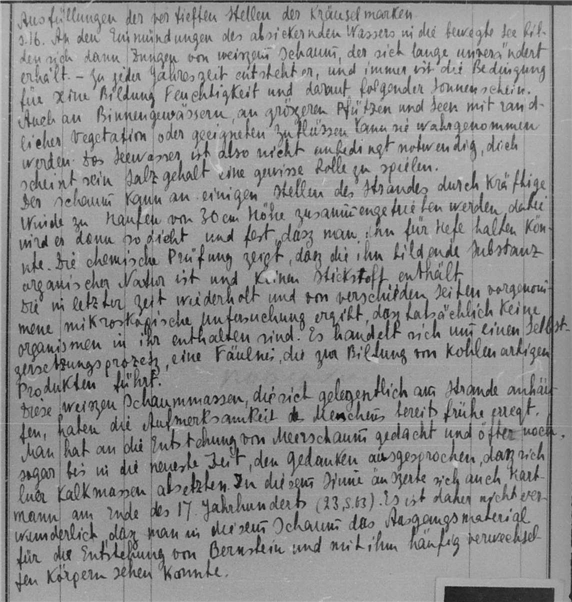 Ausfüllungen der vertieften Stellen der Kräuselmarken.
S.16. An den Einmündungen des absickernden Wassers in die bewegte See bil-
den sich dann Zungen von weiszem Schaum, der sich lange unverändert
erhält. – Zu jeder Jahreszeit entsteht er, und immer ist die Bedingung
für seine Bildung Feuchtigkeit und darauf folgender Sonnenschein.
Auch an Binnengewässern, an gröszeren Pfützen und Seen mit rand-
licher Vegetation oder geeigneten Zuflüssen kann sie wahrgenommen
werden. Das Seewasser ist also nicht unbedingt notwendig, doch
scheint sein Salzgehalt eine gewisse Rolle zu spielen.
Der Schaum kann an einigen Stellen des Strandes durch Kräftige
Winde zu Haufen von 30 cm Höhe zusammengetrieben werden, dabei
wird er dann so dicht und fest, dasz man ihn für Hefe halten kön-
nte. Die chemische Prüfung zeigt, dasz die ihn bildende Substanz
organischer Natur ist und keinen Stickstoff enthält
Die in letzter Zeit wiederholt und von verschieden Seiten vorgenom-
mene mikroskopische Untersuchung ergibt, dasz tatsächlich keine
Organismen in ihr enthalten sind. Es handelt sich um einen Selbst-
zersetzungsprozesz, eine Fäulnis, die zur Bildung von Kohlenartigen
Produkten führt.
Diese weiszen Schaummassen, die sich gelegentlich am Strande anhäu-
fen, haben die Aufmerksamkeit des Menschens bereits frühe erregt.
Man hat an die Entstehung von Meerschaum gedacht und öfter noch,
sogar bis in die neueste Zeit, den Gedanken ausgesprochen, dasz sich
hier Kalkmassen absetzten. In diesem Sinne äuszerte sich auch Hart-
mann am Ende des 17. Jahrhunderts (23, S.63). Es ist daher nicht ver-
wunderlich, dasz man in diesem Schaum das Ausgangsmaterial
für die Entstehung von Bernstein und mit ihm häufig verwechsel
ten Körpern sehen konnte.